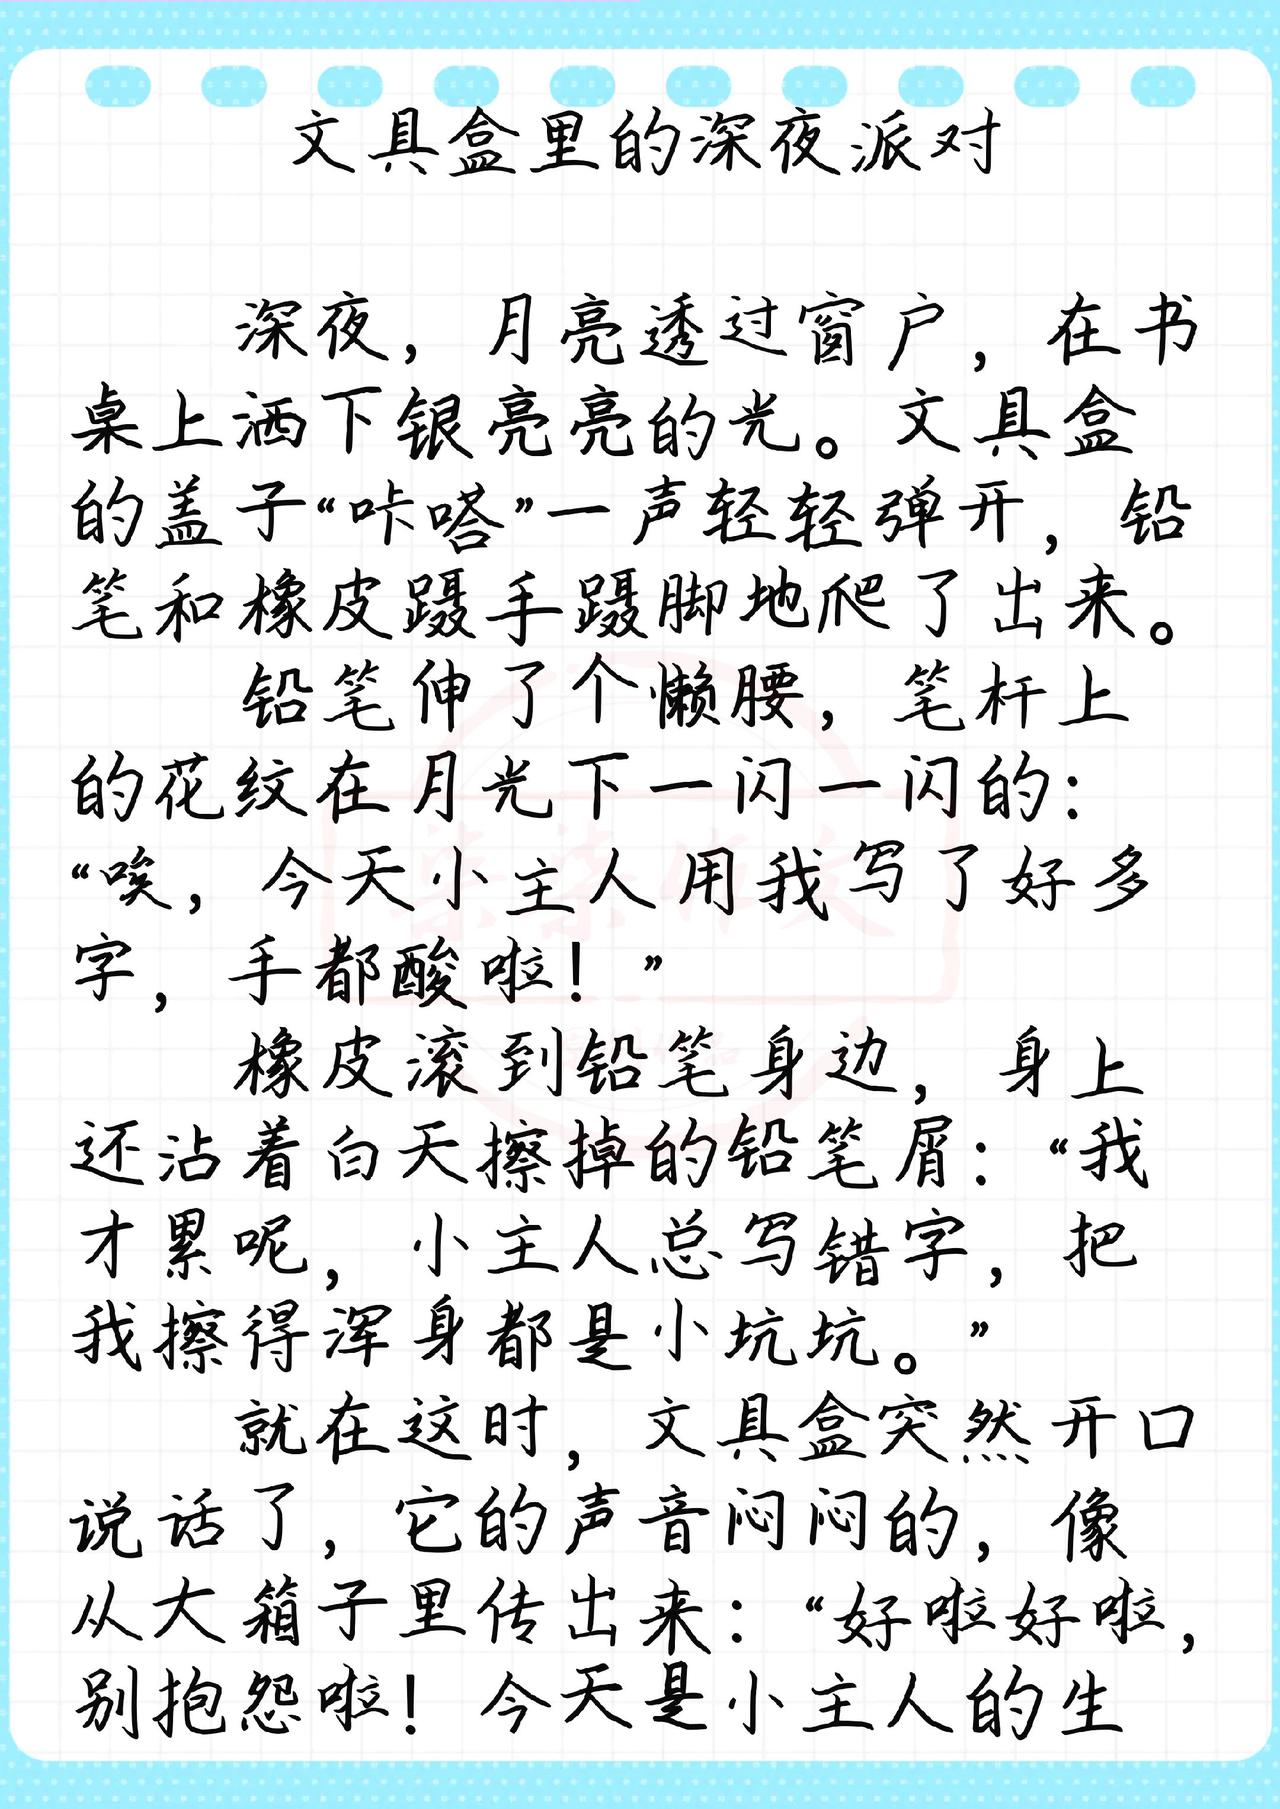 文具盒里的深夜派对
深夜，月亮透过窗户，在书
桌上洒下银亮亮的光。文具盒
的盖子“咔嗒”一声轻轻弹开，铅
笔和橡皮蹑手蹑脚地爬了出来。
铅笔伸了个懒腰，笔杆上
的花纹在月光下一闪一闪的：
“唉，今天小主人用我写了好多
字，手都酸啦！”
橡皮滚到铅笔身边，身上
还沾着白天擦掉的铅笔屑：“我
才累呢，小主人总写错字，把
我擦得浑身都是小坑坑。”
就在这时，文具盒突然开口
说话了，它的声音闷闷的，像
从大箱子里传出来：“好啦好啦，
别抱怨啦！今天是小主人的生